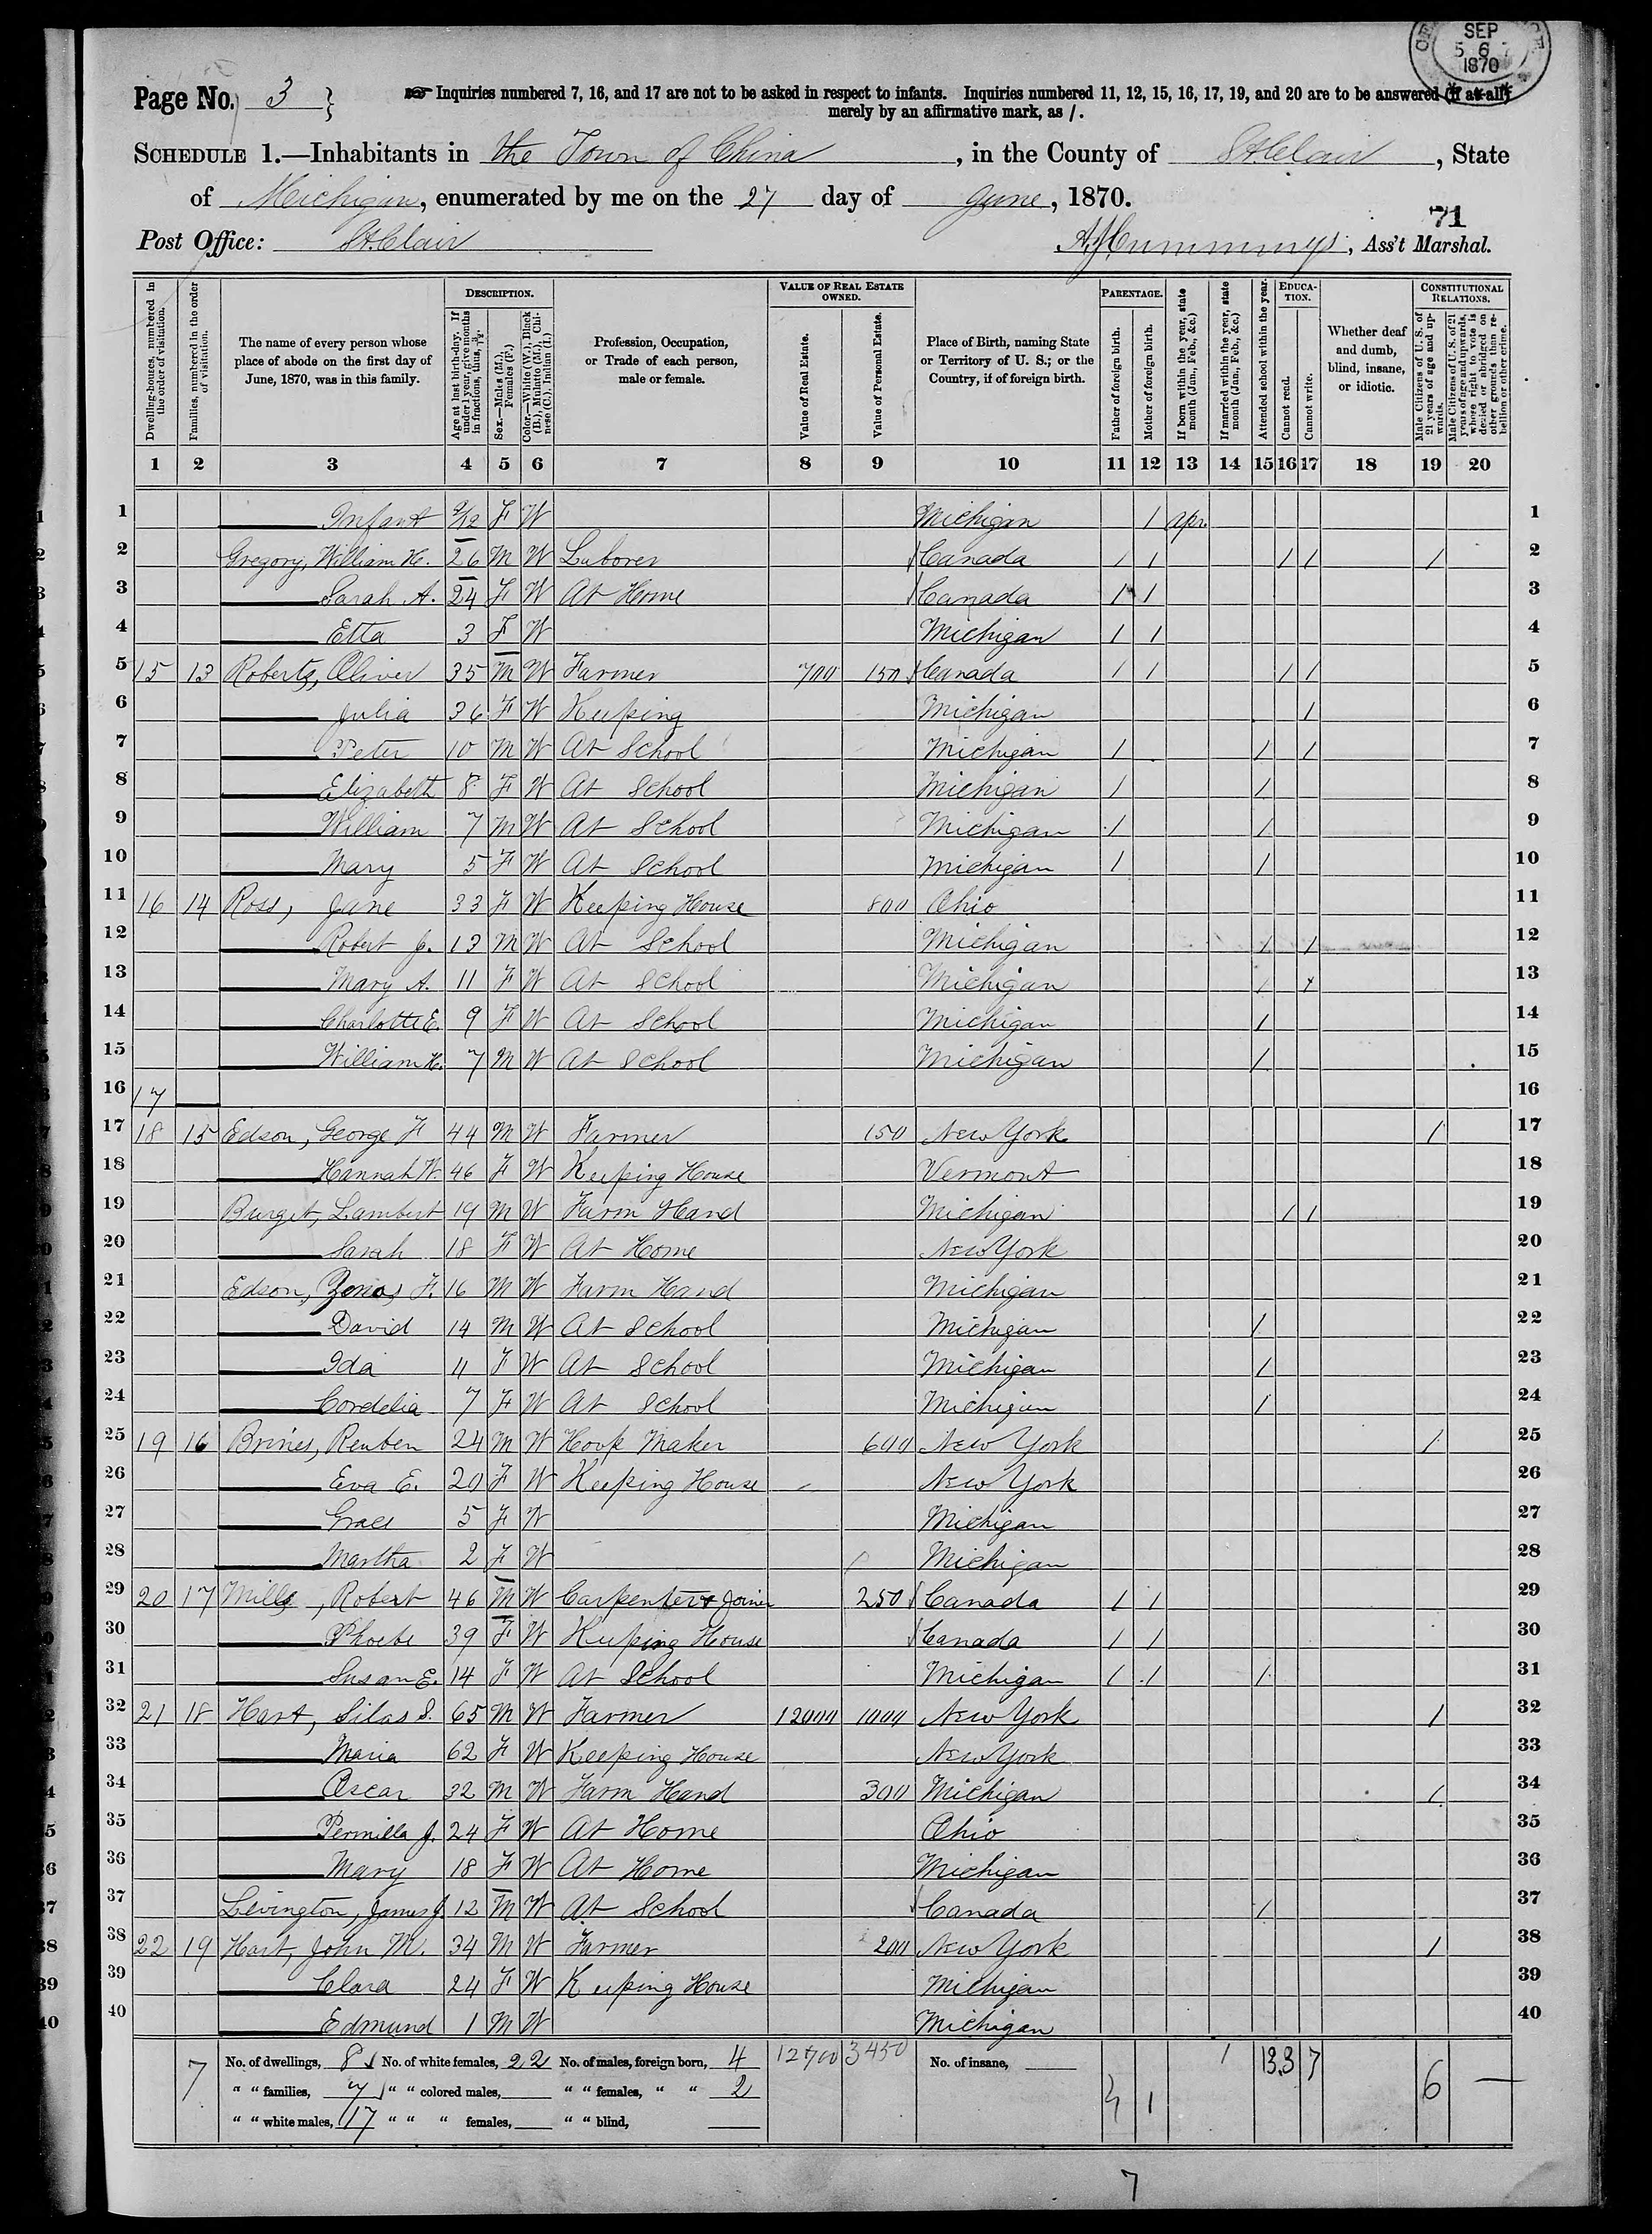 SEP
5 6
1870
Page No. 3 }
Inquiries numbered 7, 16, and 17 are not to be asked in respect to infants. Inquiries numbered 11, 12, 15, 16, 17, 19, and 20 are to be answered (if at all)
merely by an affirmative mark, as /.
SCHEDULE 1.—Inhabitants in the Town of China, in the County of St Clair, State
of Michigan, enumerated by me on the 27 day of June, 1870.
71
Post Office: St. Clair A J Cummings, Ass't Marshal.
Dwelling-houses, numbered in the order of visitation.
Families, numbered in the order of visitation.
The name of every person whose place of abode on the first day of June, 1870, was in this family.
DESCRIPTION.
Age at last birth-day. If under 1 year, give months in fractions, thus, 3/12.
Sex.—Males (M.), Females (F.)
Color.—White (W.), Black (B.), Mulatto (M.), Chinese (C.), Indian (I.)
Profession, Occupation, or Trade of each person, male or female.
VALUE OF REAL ESTATE OWNED.
Value of Real Estate.
Value of Personal Estate.
Place of Birth, naming State or Territory of U. S.; or the Country, if of foreign birth.
PARENTAGE.
Father of foreign birth.
Mother of foreign birth.
If born within the year, state month (Jan., Feb., &c.)
If married within the year, state month (Jan., Feb., &c.)
Attended school within the year.
EDUCATION.
Cannot read.
Cannot write.
Whether deaf and dumb, blind, insane, or idiotic.
CONSTITUTIONAL RELATIONS.
Male Citizens of U. S. of 21 years of age and upwards.
Male Citizens of U. S. of 21 years of age and upwards, whose right to vote is denied or abridged on other grounds than rebellion or other crime.
1 2 3 4 5 6 7 8 9 10 11 12 13 14 15 16 17 18 19 20
1 Infant 2/12 F W Michigan / Apr. 1
2 Gregory, William H. 26 M W Laborer Canada / / / / / 2
3 Sarah A. 24 F W At Home Canada / / 3
4 Etta 3 F W Michigan / / 4
5 15 13 Roberts, Oliver 35 M W Farmer 700 150 Canada / / / / 5
6 Julia 36 F W Keeping Michigan / 6
7 Peter 10 M W At School Michigan / / / 7
8 Elizabeth 8 F W At School Michigan / / 8
9 William 7 M W At School Michigan / / 9
10 Mary 5 F W At School Michigan / / 10
11 16 14 Ross, Jane 33 F W Keeping House 800 Ohio 11
12 Robert J. 13 M W At School Michigan / / 12
13 Mary A. 11 F W At School Michigan / / 13
14 Charlotte E. 9 F W At School Michigan / 14
15 William H. 7 M W At School Michigan / 15
16 17 — 16
17 18 15 Edson, George F 44 M W Farmer 150 New York / 17
18 Hannah W. 46 F W Keeping House Vermont 18
19 Burget, Lambert 19 M W Farm Hand Michigan / / 19
20 Sarah 18 F W At Home New York 20
21 Edson, Zenas F. 16 M W Farm Hand Michigan 21
22 David 14 M W At School Michigan / 22
23 Ida 11 F W At School Michigan / 23
24 Cordelia 7 F W At School Michigan / 24
25 19 16 Brines, Reuben 24 M W Hoop Maker 600 New York / 25
26 Eva E. 20 F W Keeping House New York 26
27 Grace 5 F W Michigan 27
28 Martha 2 F W Michigan 28
29 20 17 Mills, Robert 46 M W Carpenter & Joiner 250 Canada / / 29
30 Phoebe 39 F W Keeping House Canada / / 30
31 Susan E. 14 F W At School Michigan / / / 31
32 21 18 Hart, Silas S. 65 M W Farmer 12000 1000 New York / 32
33 Maria 62 F W Keeping House New York 33
34 Oscar 32 M W Farm Hand 300 Michigan / 34
35 Permilla J. 24 F W At Home Ohio 35
36 Mary 18 F W At Home Michigan 36
37 Levington, James J. 12 M W At School Canada / 37
38 22 19 Hart, John M. 34 M W Farmer 200 New York / 38
39 Clara 24 F W Keeping House Michigan 39
40 Edmund 1 M W Michigan 40
7 No. of dwellings, 8 No. of white females, 22 No. of males, foreign born, 4 12700 3450 No. of insane, 1 13 3 7 6 —
" " families, 7 " " colored males, " " females, " " 2
" " white males, 17 " " " females, " " blind,
7